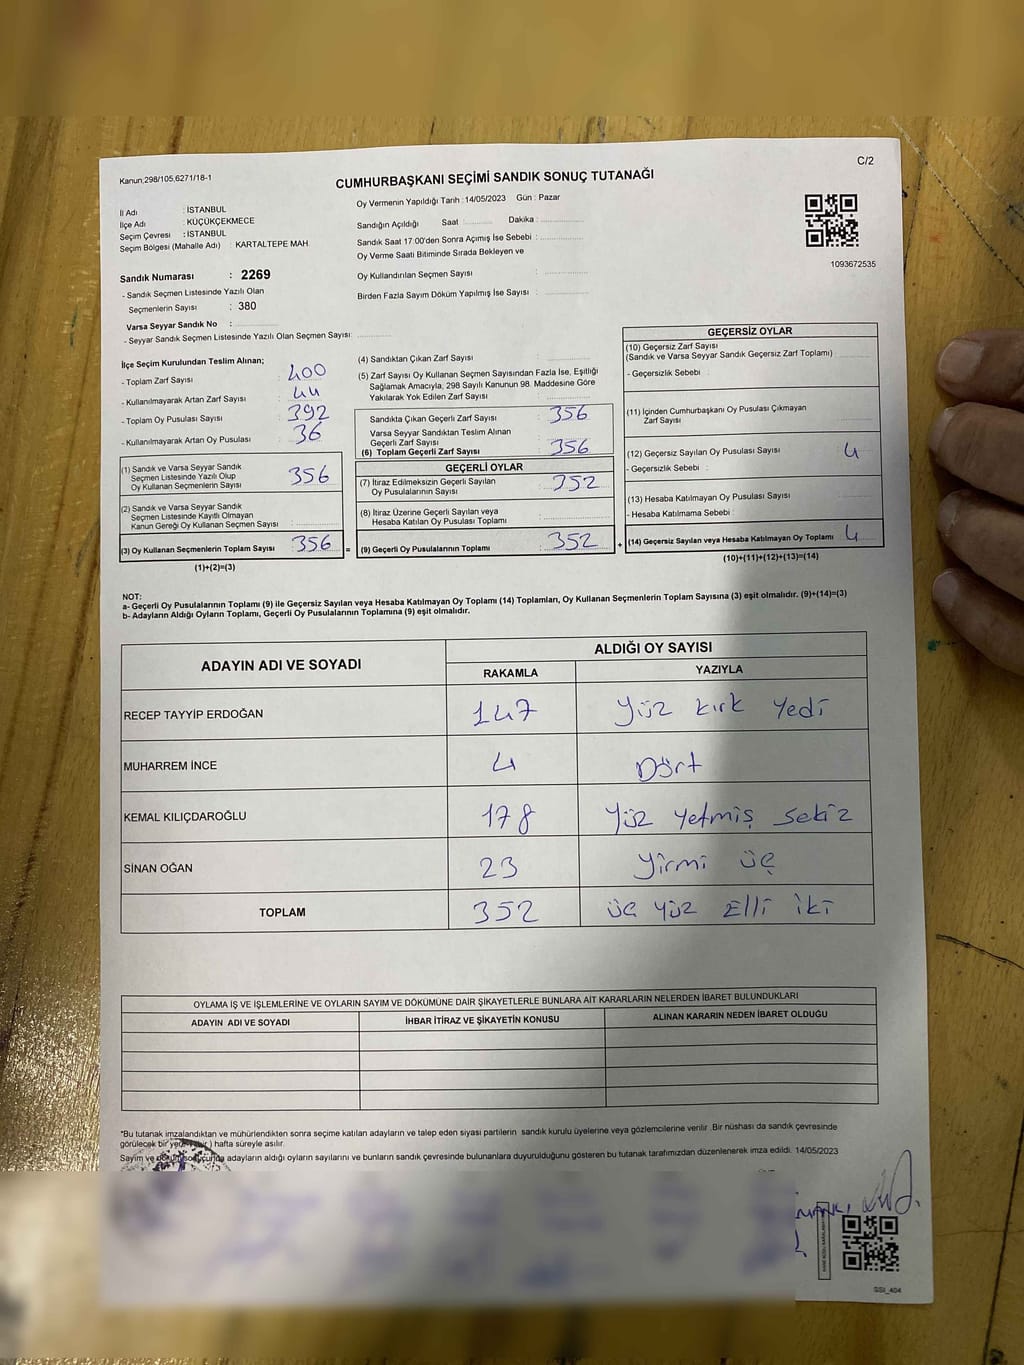 Kanun;298/105,6271/18-1
C/2
CUMHURBAŞKANI SEÇİMİ SANDIK SONUÇ TUTANAĞI
İl Adı : İSTANBUL
İlçe Adı : KÜÇÜKÇEKMECE
Seçim Çevresi : İSTANBUL
Seçim Bölgesi (Mahalle Adı) : KARTALTEPE MAH
Sandık Numarası : 2269
- Sandık Seçmen Listesinde Yazılı Olan
Seçmenlerin Sayısı : 380
Varsa Seyyar Sandık No :
- Seyyar Sandık Seçmen Listesinde Yazılı Olan Seçmen Sayısı:
Oy Vermenin Yapıldığı Tarih :14/05/2023 Gün : Pazar
Sandığın Açıldığı Saat Dakika :
Sandık Saat 17:00'den Sonra Açımış İse Sebebi :
Oy Verme Saati Bitiminde Sırada Bekleyen ve
Oy Kullandırılan Seçmen Sayısı :
Birden Fazla Sayım Döküm Yapılmış İse Sayısı :
1093672535
İlçe Seçim Kurulundan Teslim Alınan;
- Toplam Zarf Sayısı : 400
- Kullanılmayarak Artan Zarf Sayısı : 44
- Toplam Oy Pusulası Sayısı : 392
- Kullanılmayarak Artan Oy Pusulası : 36
(1) Sandık ve Varsa Seyyar Sandık
Seçmen Listesinde Yazılı Olup
Oy Kullanan Seçmenlerin Sayısı : 356
(2) Sandık ve Varsa Seyyar Sandık
Seçmen Listesinde Kayıtlı Olmayan
Kanun Gereği Oy Kullanan Seçmen Sayısı :
(3) Oy Kullanan Seçmenlerin Toplam Sayısı : 356 =
(1)+(2)=(3)
(4) Sandıktan Çıkan Zarf Sayısı :
(5) Zarf Sayısı Oy Kullanan Seçmen Sayısından Fazla İse, Eşitliği
Sağlamak Amacıyla, 298 Sayılı Kanunun 98. Maddesine Göre
Yakılarak Yok Edilen Zarf Sayısı :
Sandıkta Çıkan Geçerli Zarf Sayısı : 356
Varsa Seyyar Sandıktan Teslim Alınan
Geçerli Zarf Sayısı :
(6) Toplam Geçerli Zarf Sayısı : 356
GEÇERLİ OYLAR
(7) İtiraz Edilmeksizin Geçerli Sayılan
Oy Pusulalarının Sayısı : 352
(8) İtiraz Üzerine Geçerli Sayılan veya
Hesaba Katılan Oy Pusulası Toplamı :
(9) Geçerli Oy Pusulalarının Toplamı : 352 +
GEÇERSİZ OYLAR
(10) Geçersiz Zarf Sayısı
(Sandık ve Varsa Seyyar Sandık Geçersiz Zarf Toplamı)
- Geçersizlik Sebebi :
(11) İçinden Cumhurbaşkanı Oy Pusulası Çıkmayan
Zarf Sayısı
(12) Geçersiz Sayılan Oy Pusulası Sayısı 4
- Geçersizlik Sebebi :
(13) Hesaba Katılmayan Oy Pusulası Sayısı
- Hesaba Katılmama Sebebi :
(14) Geçersiz Sayılan veya Hesaba Katılmayan Oy Toplamı 4
(10)+(11)+(12)+(13)=(14)
NOT:
a- Geçerli Oy Pusulalarının Toplamı (9) ile Geçersiz Sayılan veya Hesaba Katılmayan Oy Toplamı (14) Toplamları, Oy Kullanan Seçmenlerin Toplam Sayısına (3) eşit olmalıdır. (9)+(14)=(3)
b- Adayların Aldığı Oyların Toplamı, Geçerli Oy Pusulalarının Toplamına (9) eşit olmalıdır.
ADAYIN ADI VE SOYADI
ALDIĞI OY SAYISI
RAKAMLA YAZIYLA
RECEP TAYYİP ERDOĞAN 147 Yüz kırk yedi
MUHARREM İNCE 4 Dört
KEMAL KILIÇDAROĞLU 178 Yüz yetmiş sekiz
SİNAN OĞAN 23 Yirmi üç
TOPLAM 352 üç yüz Elli iki
OYLAMA İŞ VE İŞLEMLERİNE VE OYLARIN SAYIM VE DÖKÜMÜNE DAİR ŞİKAYETLERLE BUNLARA AİT KARARLARIN NELERDEN İBARET BULUNDUKLARI
ADAYIN ADI VE SOYADI İHBAR İTİRAZ VE ŞİKAYETİN KONUSU ALINAN KARARIN NEDEN İBARET OLDUĞU
*Bu tutanak imzalandıktan ve mühürlendikten sonra seçime katılan adayların ve talep eden siyasi partilerin sandık kurulu üyelerine veya gözlemcilerine verilir. Bir nüshası da sandık çevresinde
görülecek bir hafta süreyle asılır.
Sayım ve adayların aldığı oyların sayılarını ve bunların sandık çevresinde bulunanlara duyurulduğunu gösteren bu tutanak tarafımızdan düzenlenerek imza edildi. 14/05/2023
SSI_404